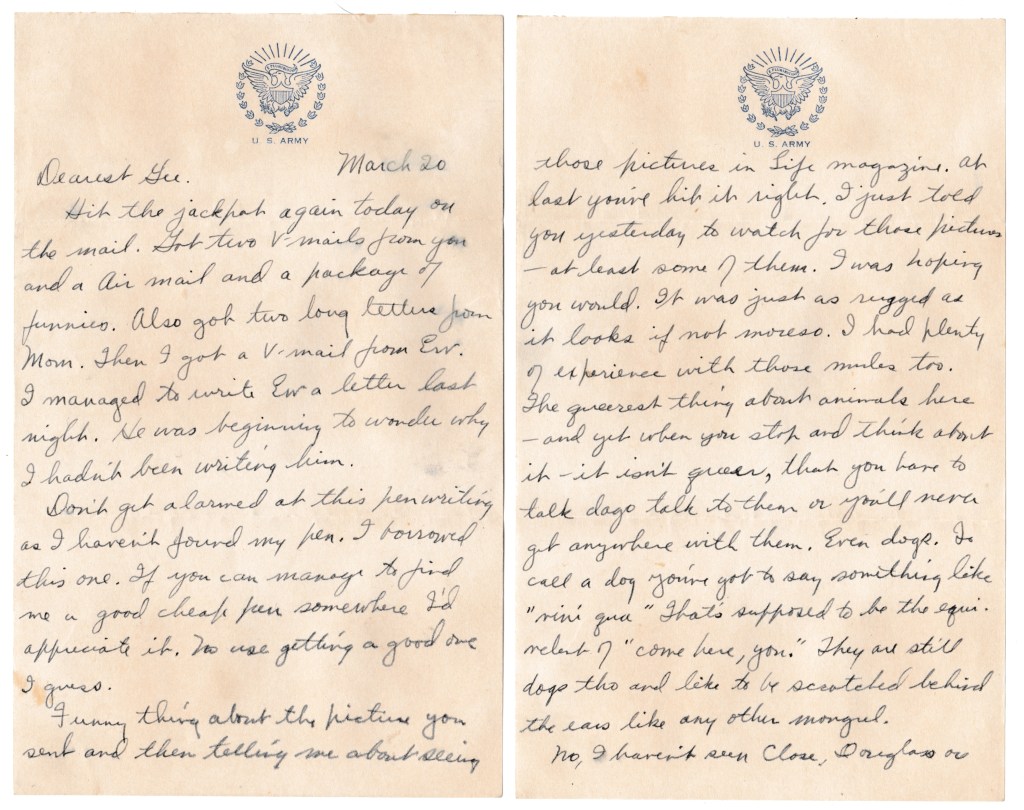 U. S. ARMY
March 20
Dearest
Hit the jackpot again today on
the mail. Got two V-mails from you
and a Air mail and a package of
funnies. Also got two long letters from
Mom. Then I got a V-mail from Erv.
I managed to write Erv a letter last
night. He was beginning to wonder why
I hadn't been writing him.
Don't get alarmed at this penwriting
as I haven't found my pen. I borrowed
this one. If you can manage to find
me a good cheap pen somewhere I'd
appreciate it. No use getting a good one
I guess.
Funny thing about the picture you
sent and then telling me about seeing
U. S. ARMY
those pictures in Life magazine. At
last you've hit it right. I just told
you yesterday to watch for those pictures
- at least some of them. I was hoping
you would. It was just as rugged as
it looks if not moreso. I had plenty
of experience with those mules too.
The queerest thing about animals here
- and yet when you stop and think about
it - it isn't queer, that you have to
talk dago talk to them or you'll never
get anywhere with them. Even dogs. To
call a dog you've got to say something like
"vini qua" That's supposed to be the equi-
velent of "come here, you." They are still
dogs tho and like to be scratched behind
the ears like any other mongrel.
No, I haven't seen Close, Douglass or